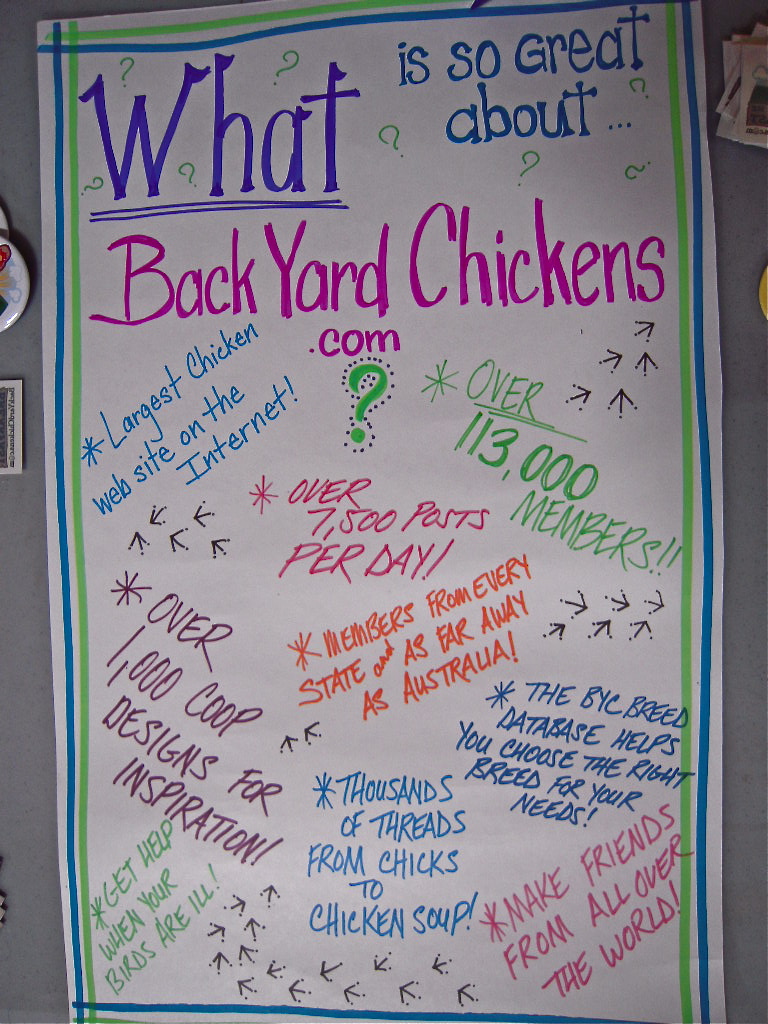 What is so Great
about...
BackYard Chickens
.com
?
* Largest Chicken
web site on the
Internet!
* OVER
113,000
MEMBERS!!
* OVER
7,500 POSTS
PER DAY!
* OVER
1,000 COOP
DESIGNS FOR
INSPIRATION!
* MEMBERS FROM EVERY
STATE and AS FAR AWAY
AS AUSTRALIA!
* THE BYC BREED
DATABASE HELPS
YOU CHOOSE THE RIGHT
BREED FOR YOUR
NEEDS!
* THOUSANDS
OF THREADS
FROM CHICKS
TO
CHICKEN SOUP!
* GET HELP
WHEN YOUR
BIRDS ARE ILL!
* MAKE FRIENDS
FROM ALL OVER
THE WORLD!